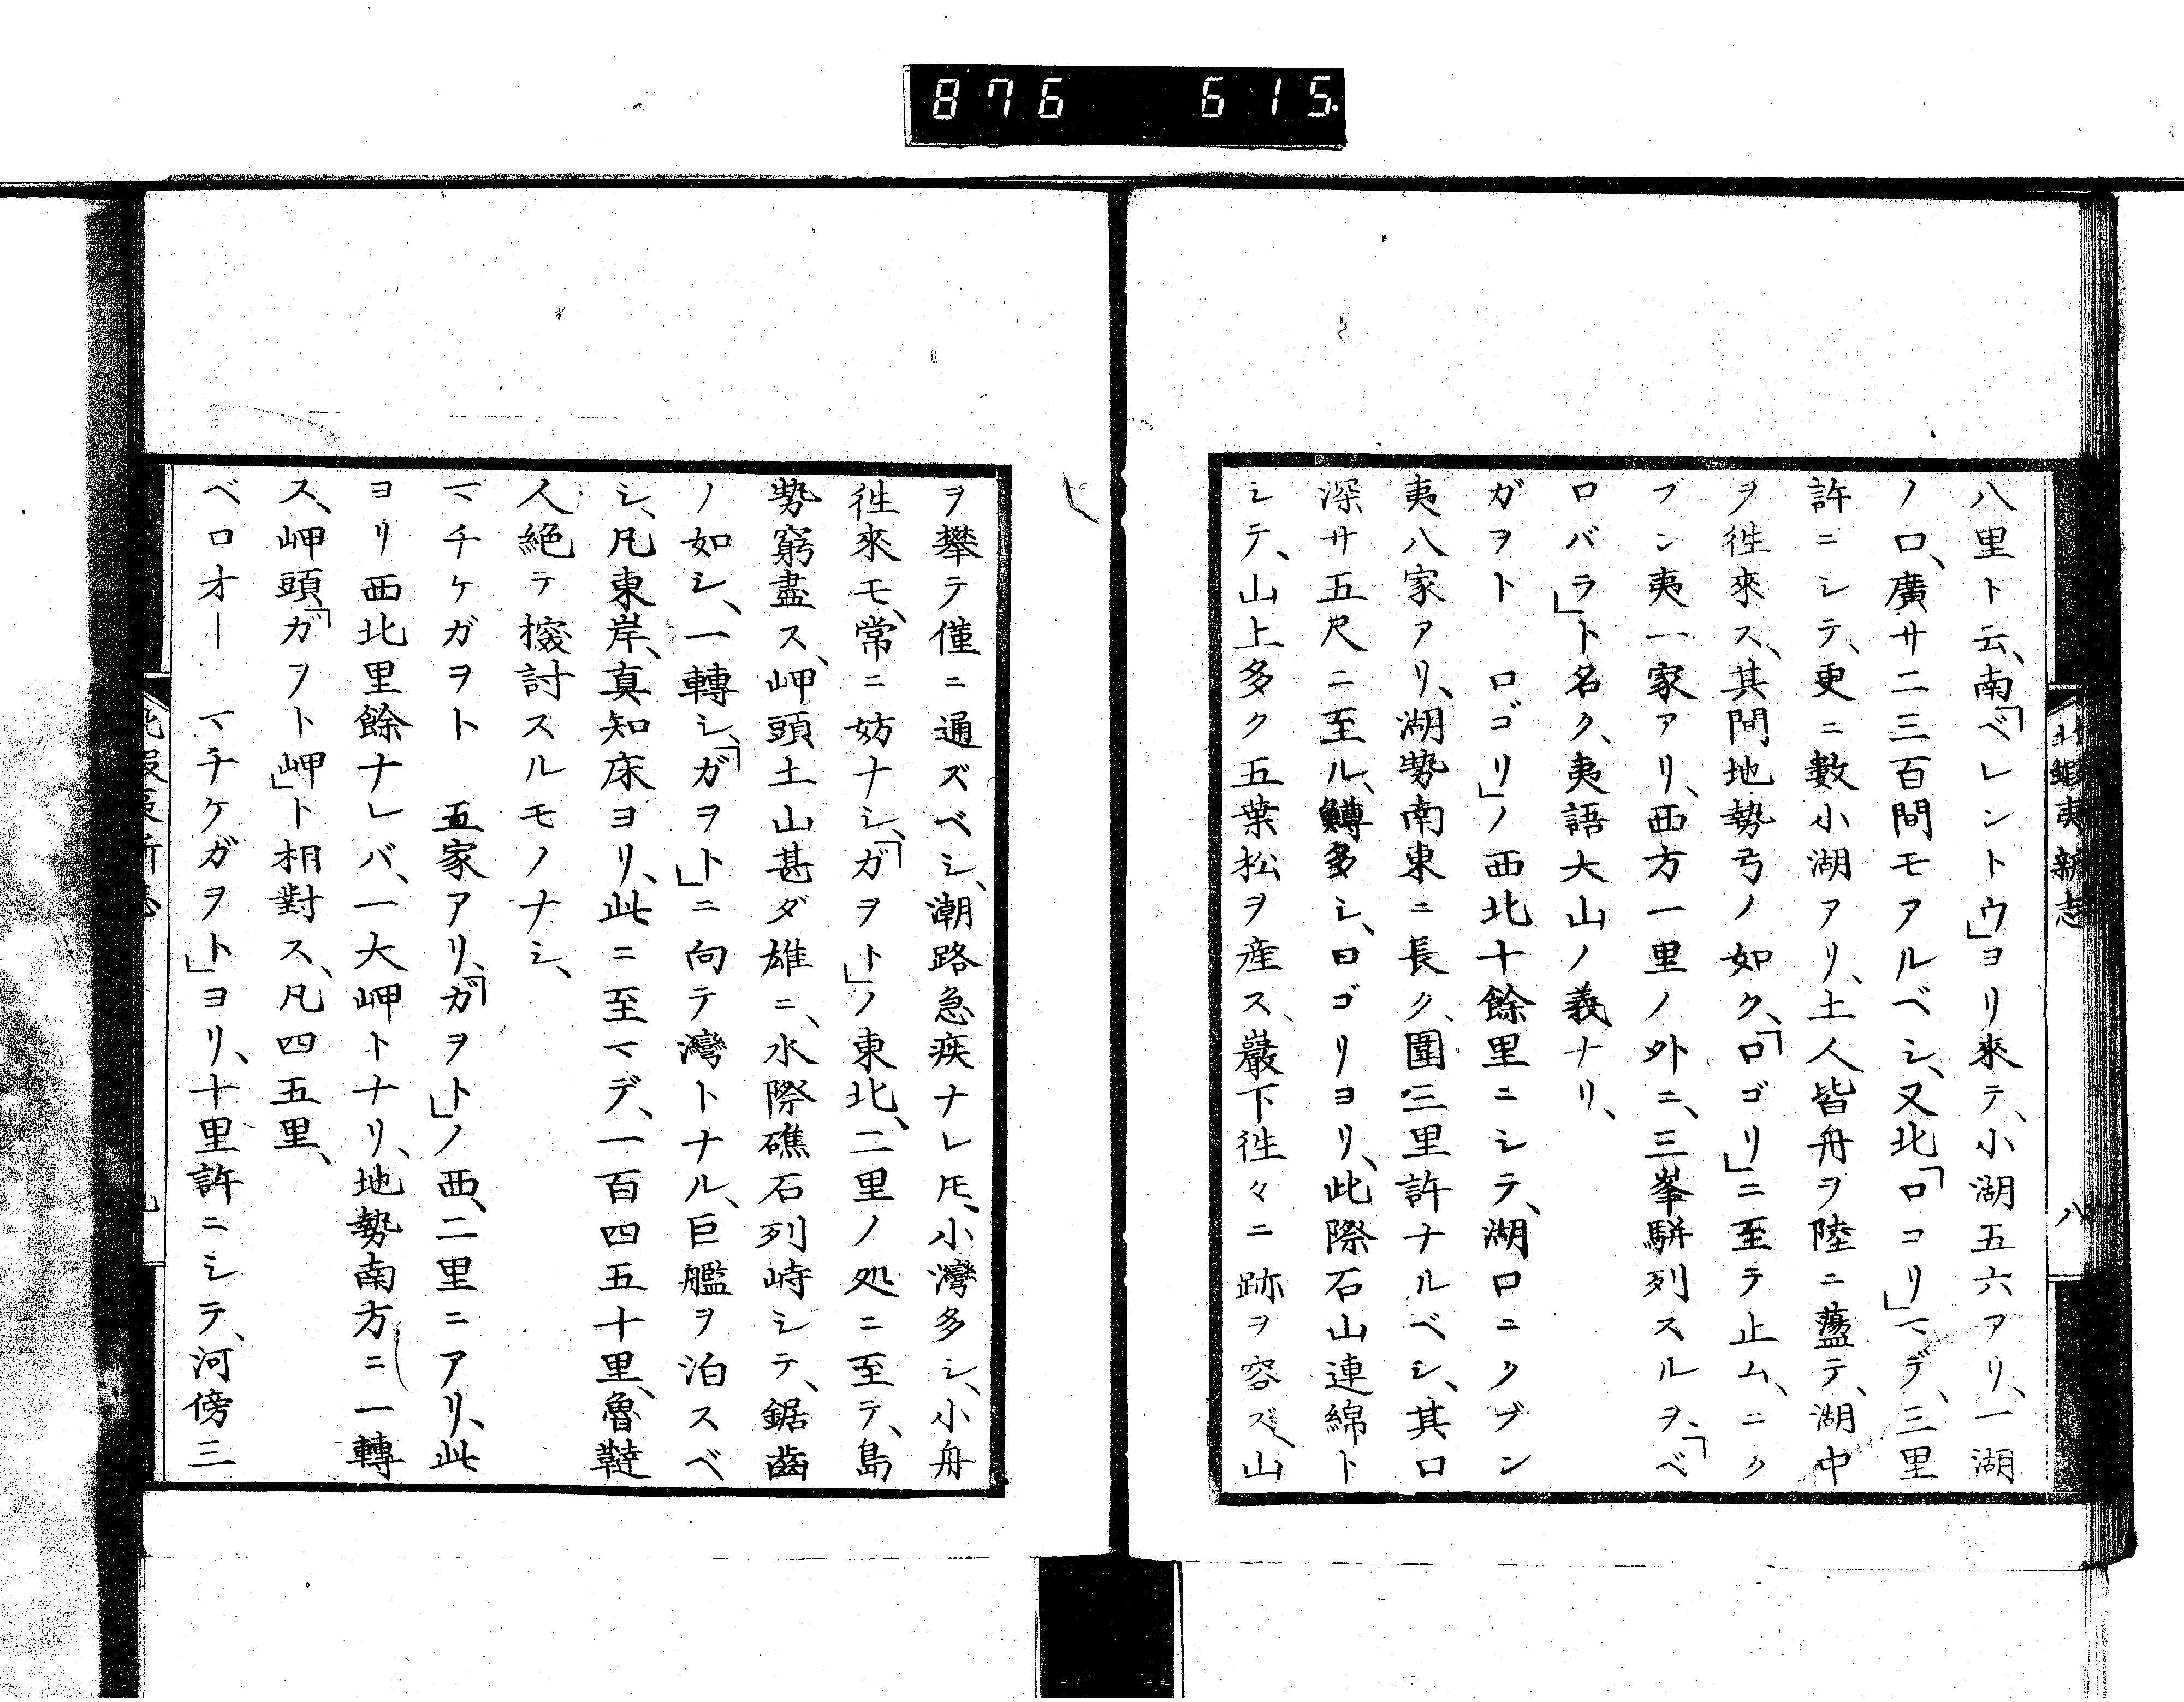 876 615.
北蝦夷新志
八
八里ト云、南「ベレントウ」ヨリ來テ、小湖五六アリ、一湖
ノ口、廣サ二三百間モアルベシ、又北「ロコリ」マデ、三里
許ニシテ、更ニ數小湖アリ、土人皆舟ヲ陸ニ盪テ、湖中
ヲ徃來ス、其間地勢弓ノ如ク、「ロゴリ」ニ至テ止ム、ニク
ブン夷一家アリ、西方一里ノ外ニ、三峯駢列スルヲ、「ベ
ロバラ」ト名ク、夷語大山ノ義ナリ、
ガヲト　ロゴリ」ノ西北十餘里ニシテ、湖口ニクブン
夷八家アリ、湖勢南東ニ長ク、圍三里許ナルベシ、其口
深サ五尺ニ至ル、鱒多シ、ロゴリヨリ、此際石山連綿ト
シテ、山上多ク五葉松ヲ産ス、巖下徃々ニ跡ヲ容ズ、山
ヲ攀テ僅ニ通ズベシ、潮路急疾ナレ𪜈、小灣多シ、小舟
徃來モ、常ニ妨ナシ、「ガヲト」ノ東北、二里ノ処ニ至テ、島
勢窮盡ス、岬頭土山甚ダ雄ニ、水際礁石列峙シテ、鋸齒
ノ如シ、一轉シ、「ガヲト」ニ向テ灣トナル、巨艦ヲ泊スベ
シ、凡東岸、真知床ヨリ、此ニ至マデ、一百四五十里、魯韃
人絶テ探討スルモノナシ、
マチケガヲト　五家アリ、「ガヲト」ノ西、二里ニアリ、此
ヨリ西北里餘ナレバ、一大岬トナリ、地勢南方ニ一轉
ス、岬頭「ガヲト岬」ト相對ス、凡四五里、
ベロオー　マチケガヲト」ヨリ、十里許ニシテ、河傍三